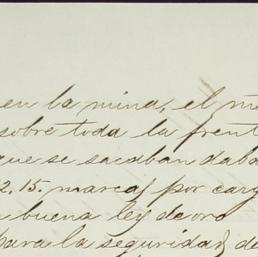 en la mina, el m
sobre toda la frent
que se sacaban daba
2, 15. marcas por car
buena ley de oro
para la seguridad de